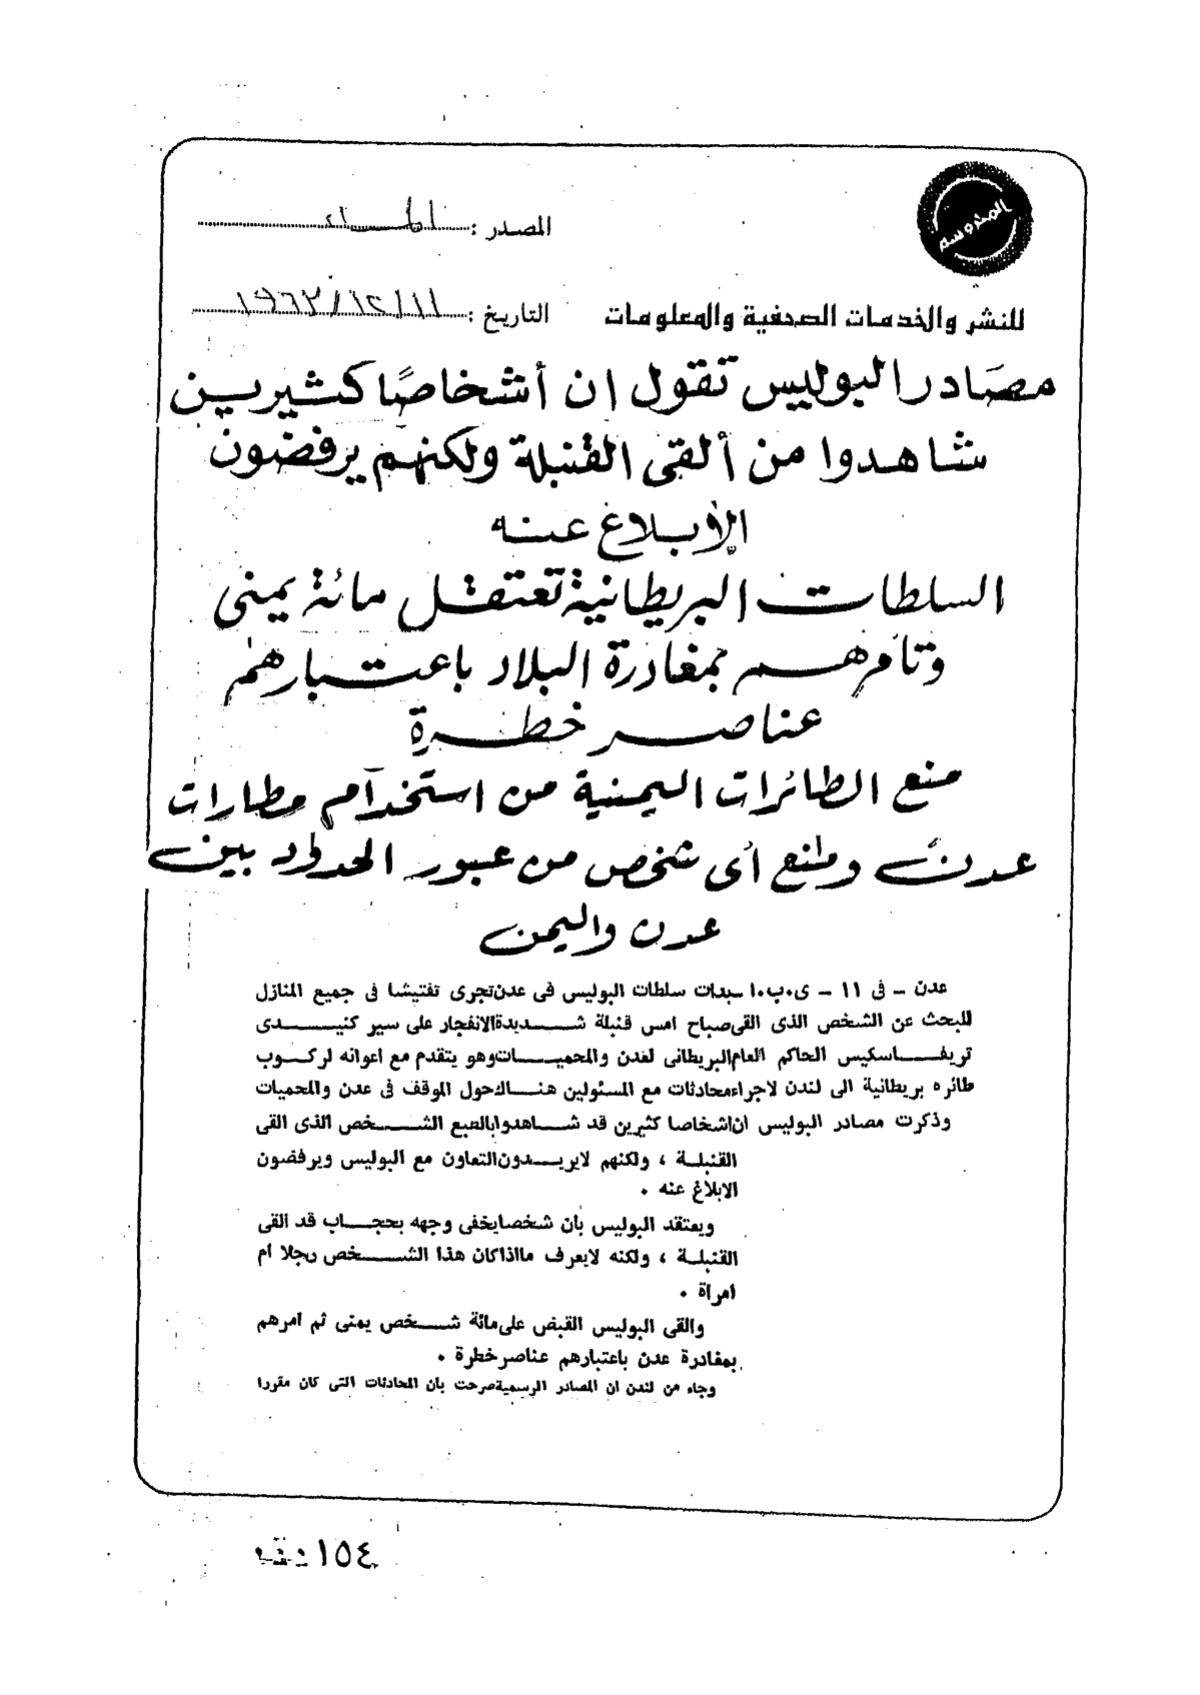 المحروسة
المصدر : المساء
للنشر والخدمات الصحفية والمعلومات
التاريخ : ١٩٦٣/١٢/١١
مصادر البوليس تقول ان أشخاصًا كثيرين
شاهدوا من ألقى القنبلة ولكنهم يرفضون
الأبلاغ عنه
السلطات البريطانية تعتقل مائة يمنى
وتأمرهم بمغادرة البلاد باعتبارهم
عناصر خطرة
منع الطائرات اليمنية من استخدام مطارات
عدن ومنع أى شخص من عبور الحدود بين
عدن واليمن
عدن - فى ١١ - ى٠ب٠ا - بدات سلطات البوليس فى عدن تجرى تفتيشا فى جميع المنازل
للبحث عن الشخص الذى القى صباح امس قنبلة شديدة الانفجار على سير كنيدى
تريفاسكيس الحاكم العام البريطانى لعدن والمحميات وهو يتقدم مع اعوانه لركوب
طائره بريطانية الى لندن لاجراء محادثات مع المسئولين هناك حول الموقف فى عدن والمحميات
وذكرت مصادر البوليس ان اشخاصا كثيرين قد شاهدوا بالطبع الشخص الذى القى
القنبلة ، ولكنهم لايريدون التعاون مع البوليس ويرفضون
الابلاغ عنه ٠
ويعتقد البوليس بان شخصا يخفى وجهه بحجاب قد القى
القنبلة ، ولكنه لايعرف مااذا كان هذا الشخص رجلا ام
امراة ٠
والقى البوليس القبض على مائة شخص يمنى ثم امرهم
بمغادرة عدن باعتبارهم عناصر خطرة ٠
وجاء من لندن ان المصادر الرسمية صرحت بان المحادثات التى كان مقررا
١٥٤